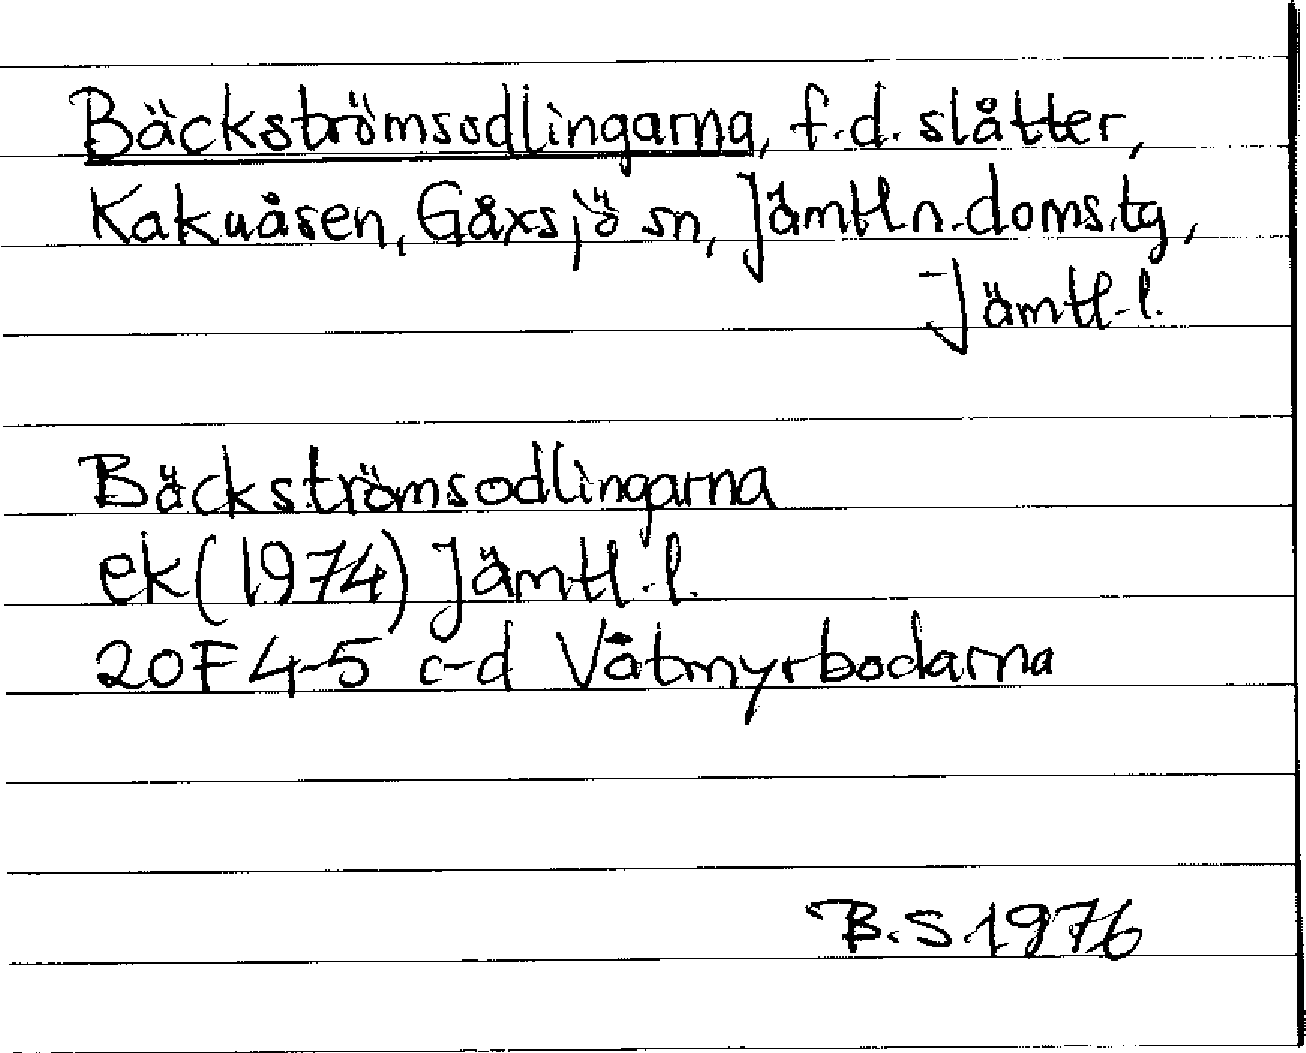 Bäckströmsodlingarna, f.d. slåtter,
Kakuåsen, Gåxsjö sn, Jämtl.n. doms.tg,
Jämtl. l.
Bäckströmsodlingarna
ek (1974) Jämtl. l.
20F 4-5 c-d Våtmyrbodarna
B.S. 1976